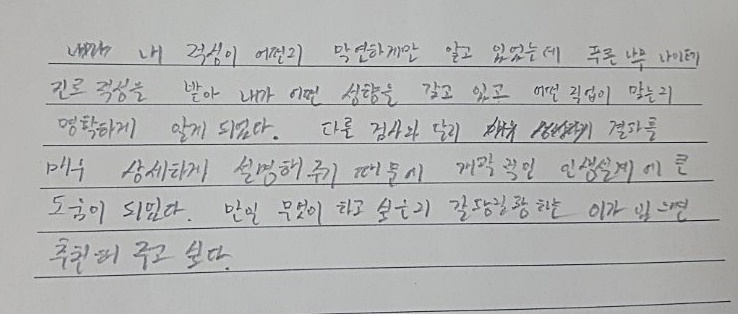 내 적성이 어떤지 막연하게만 알고 있었는데 푸른나무
진로적성을 받아 내가 어떤 성향을 갖고 있고 어떤 직업이 맞는지
명확하게 알게 되었다. 다른 검사와 달리 결과를
매우 상세하게 설명해 주기 때문에 인생설계에 큰
도움이 되었다. 만일 무엇이 하고 싶은지 갈팡질팡하는 이가 있으면
추천해 주고 싶다.